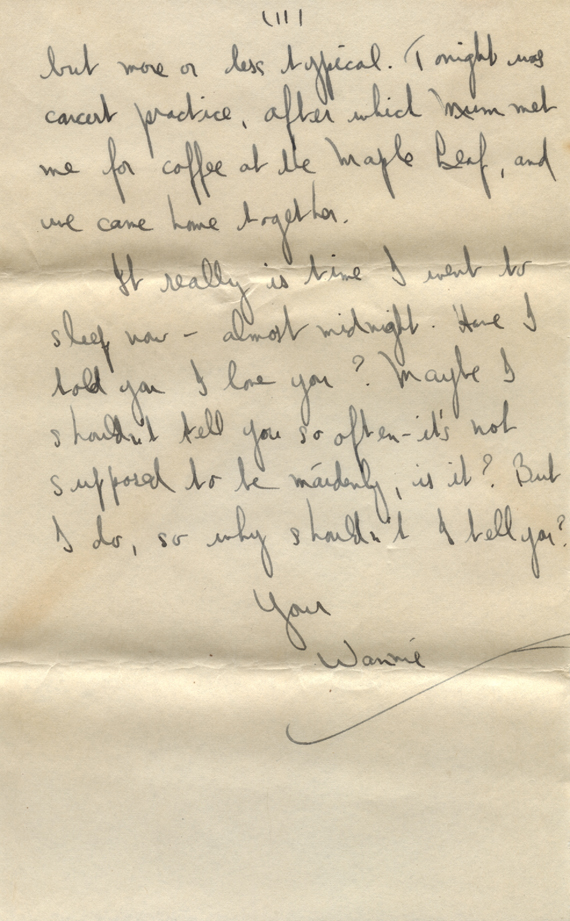 (III)
but more or less typical. Tonight was
concert practice, after which Mum met
me for coffee at the Maple Leaf, and
we came home together.
It really is time I went to
sleep now - almost midnight. Have I
told you I love you? Maybe I
shouldn't tell you so often - it's not
supposed to be maidenly, is it? But
I do, so why shouldn't I tell you?
Your
Wannie